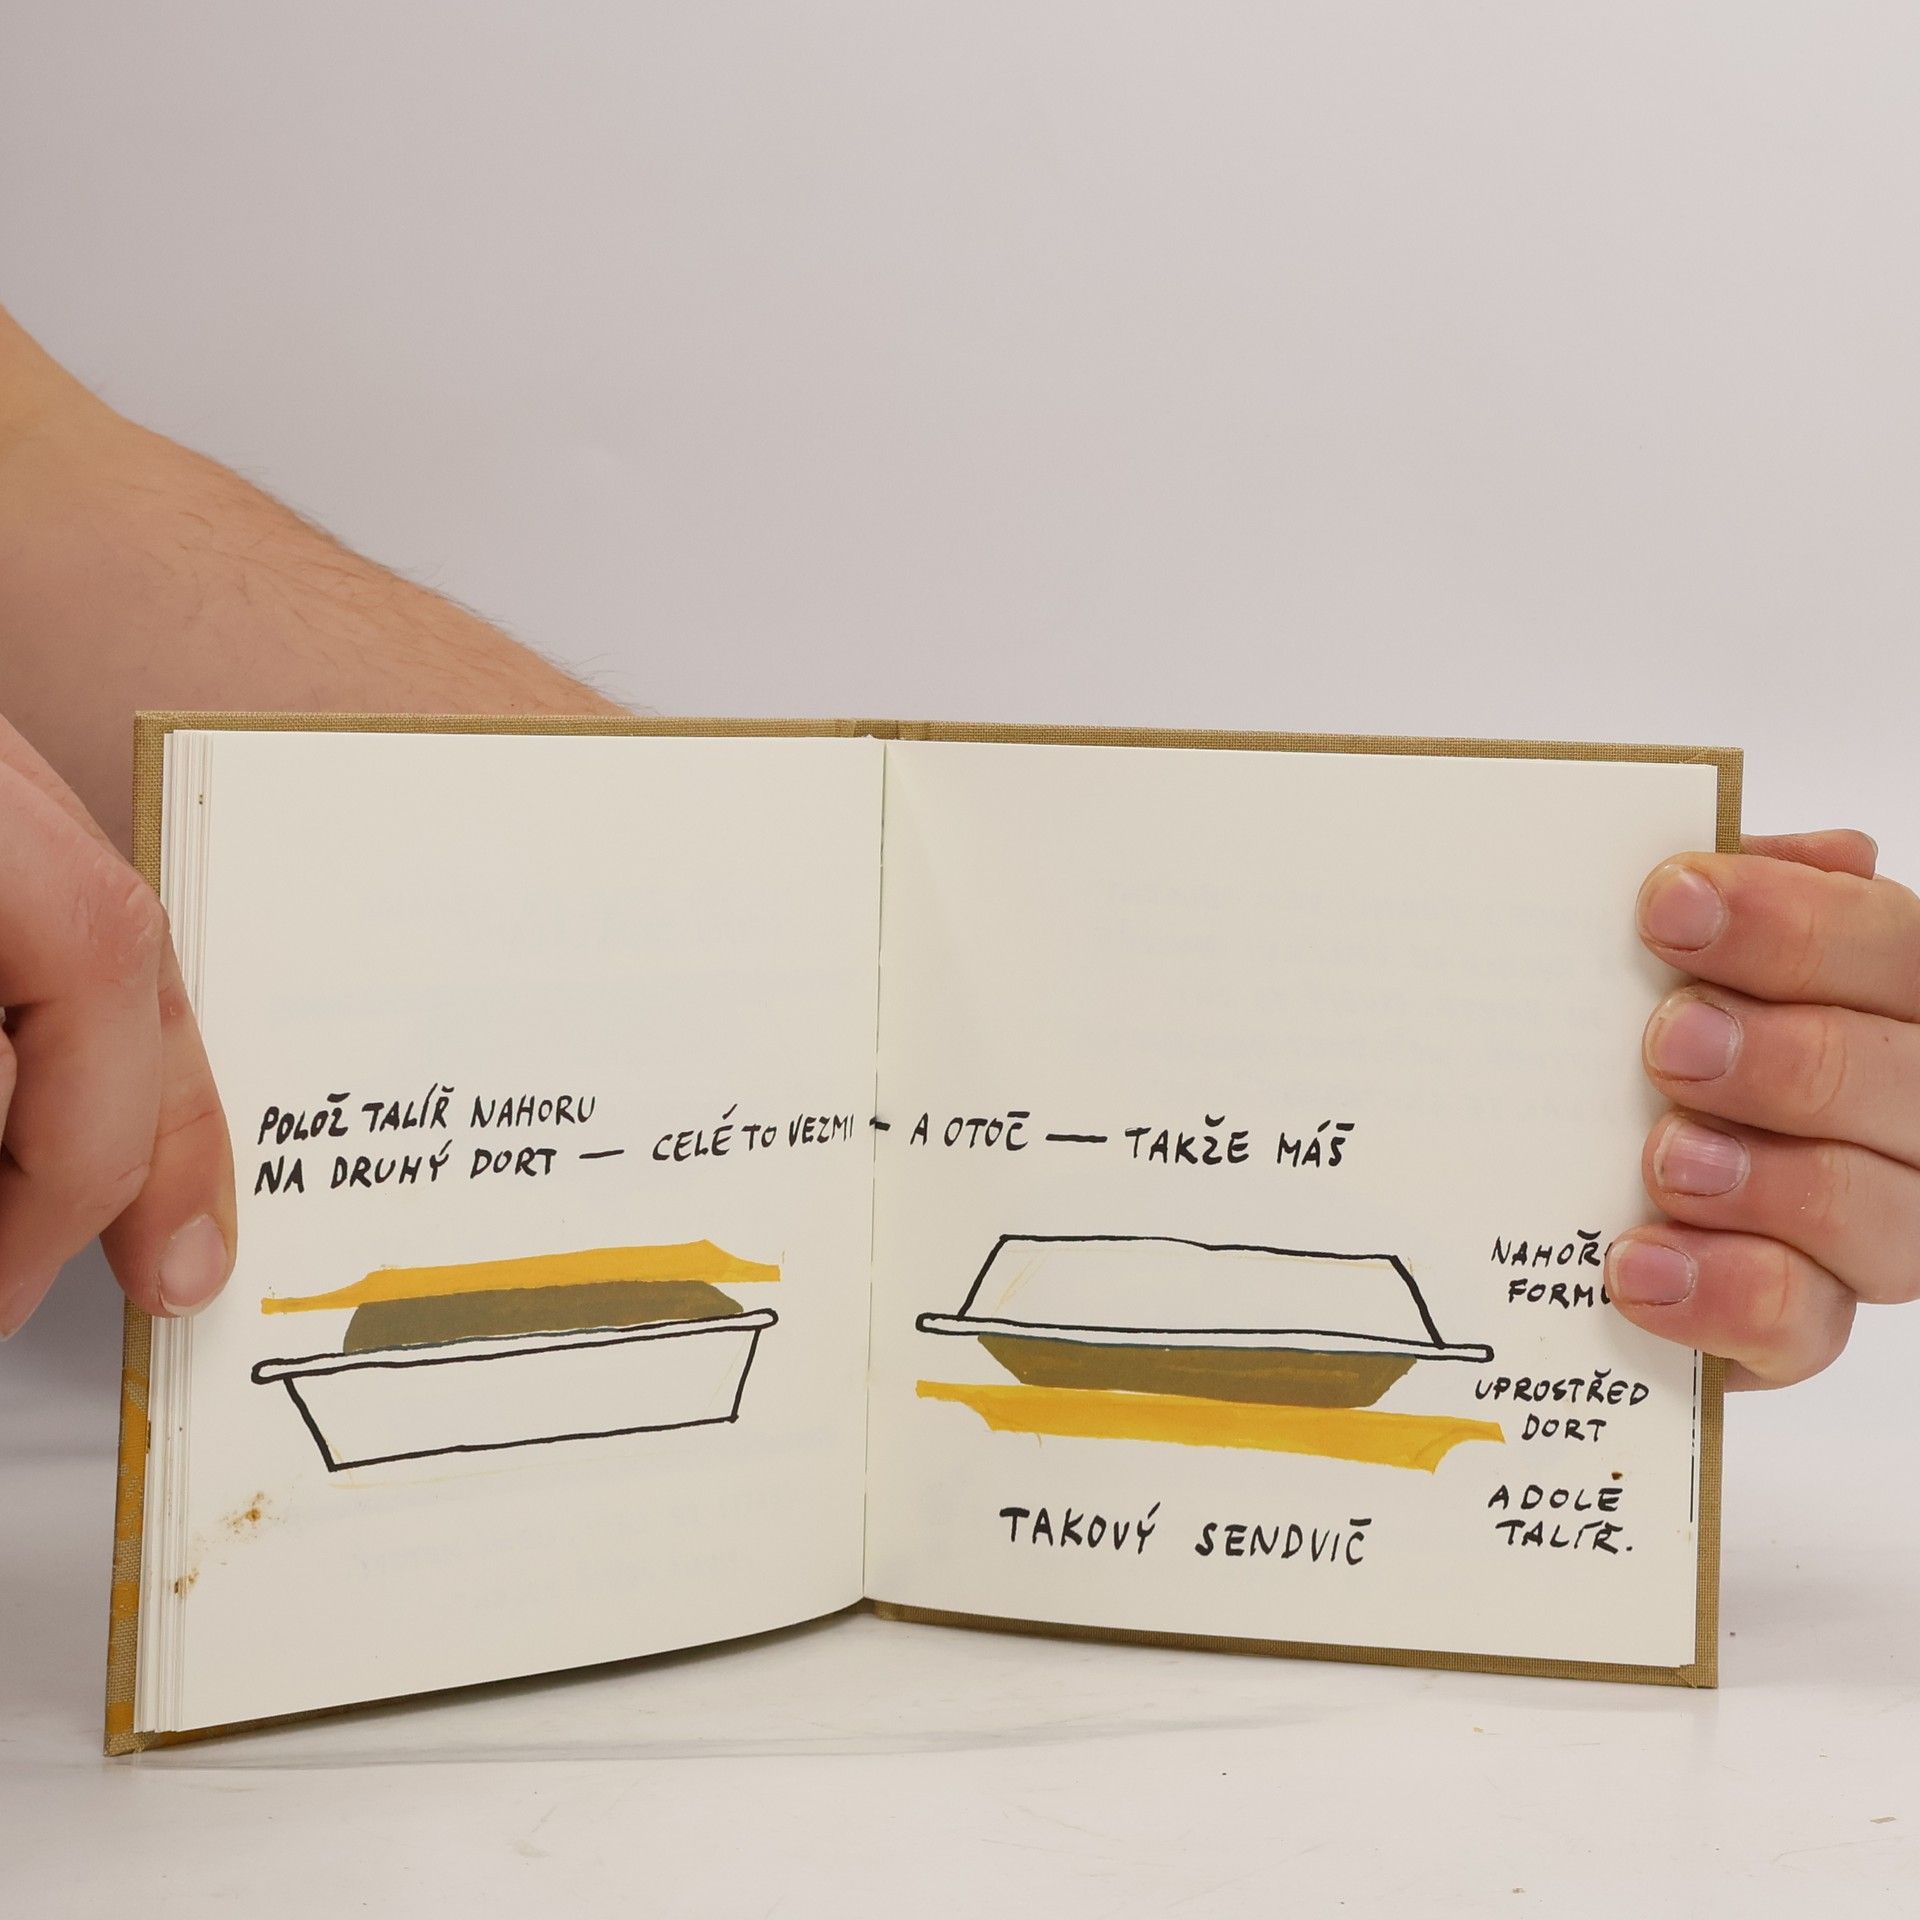 POLOŽ TALÍŘ NAHORU
NA DRUHÝ DORT — CELÉ TO VEZMI - A OTOČ — TAKŽE MÁŠ
NAHOŘ
FORM
UPROSTŘED
DORT
A DOLE
TALÍŘ.
TAKOVÝ SENDVIČ